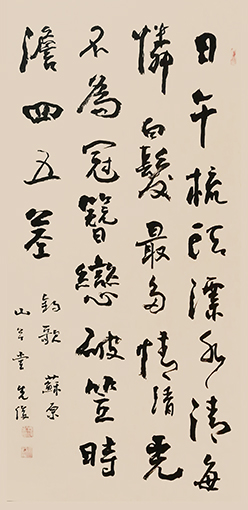 日午梳頭漂水清每
憐白髮最多情清
不為冠簪戀破笠時
澹四五莖
釣歌 蘇原
山谷堂